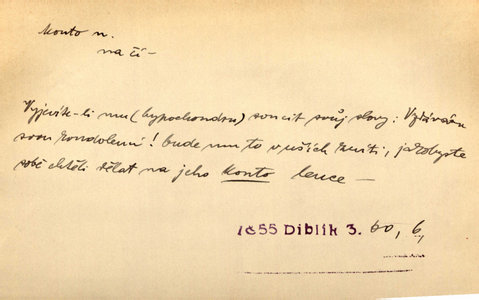 Konto n.
na čí –
Vyjevíte-li mu (hypochondru) soucit svůj slovy: Vyslovuju
svou kondolenci! bude mu to v uších zníti, jakobyste
sobě chtěli dělat na jeho Konto lence –
1855 Diblík 3. 60, 6,